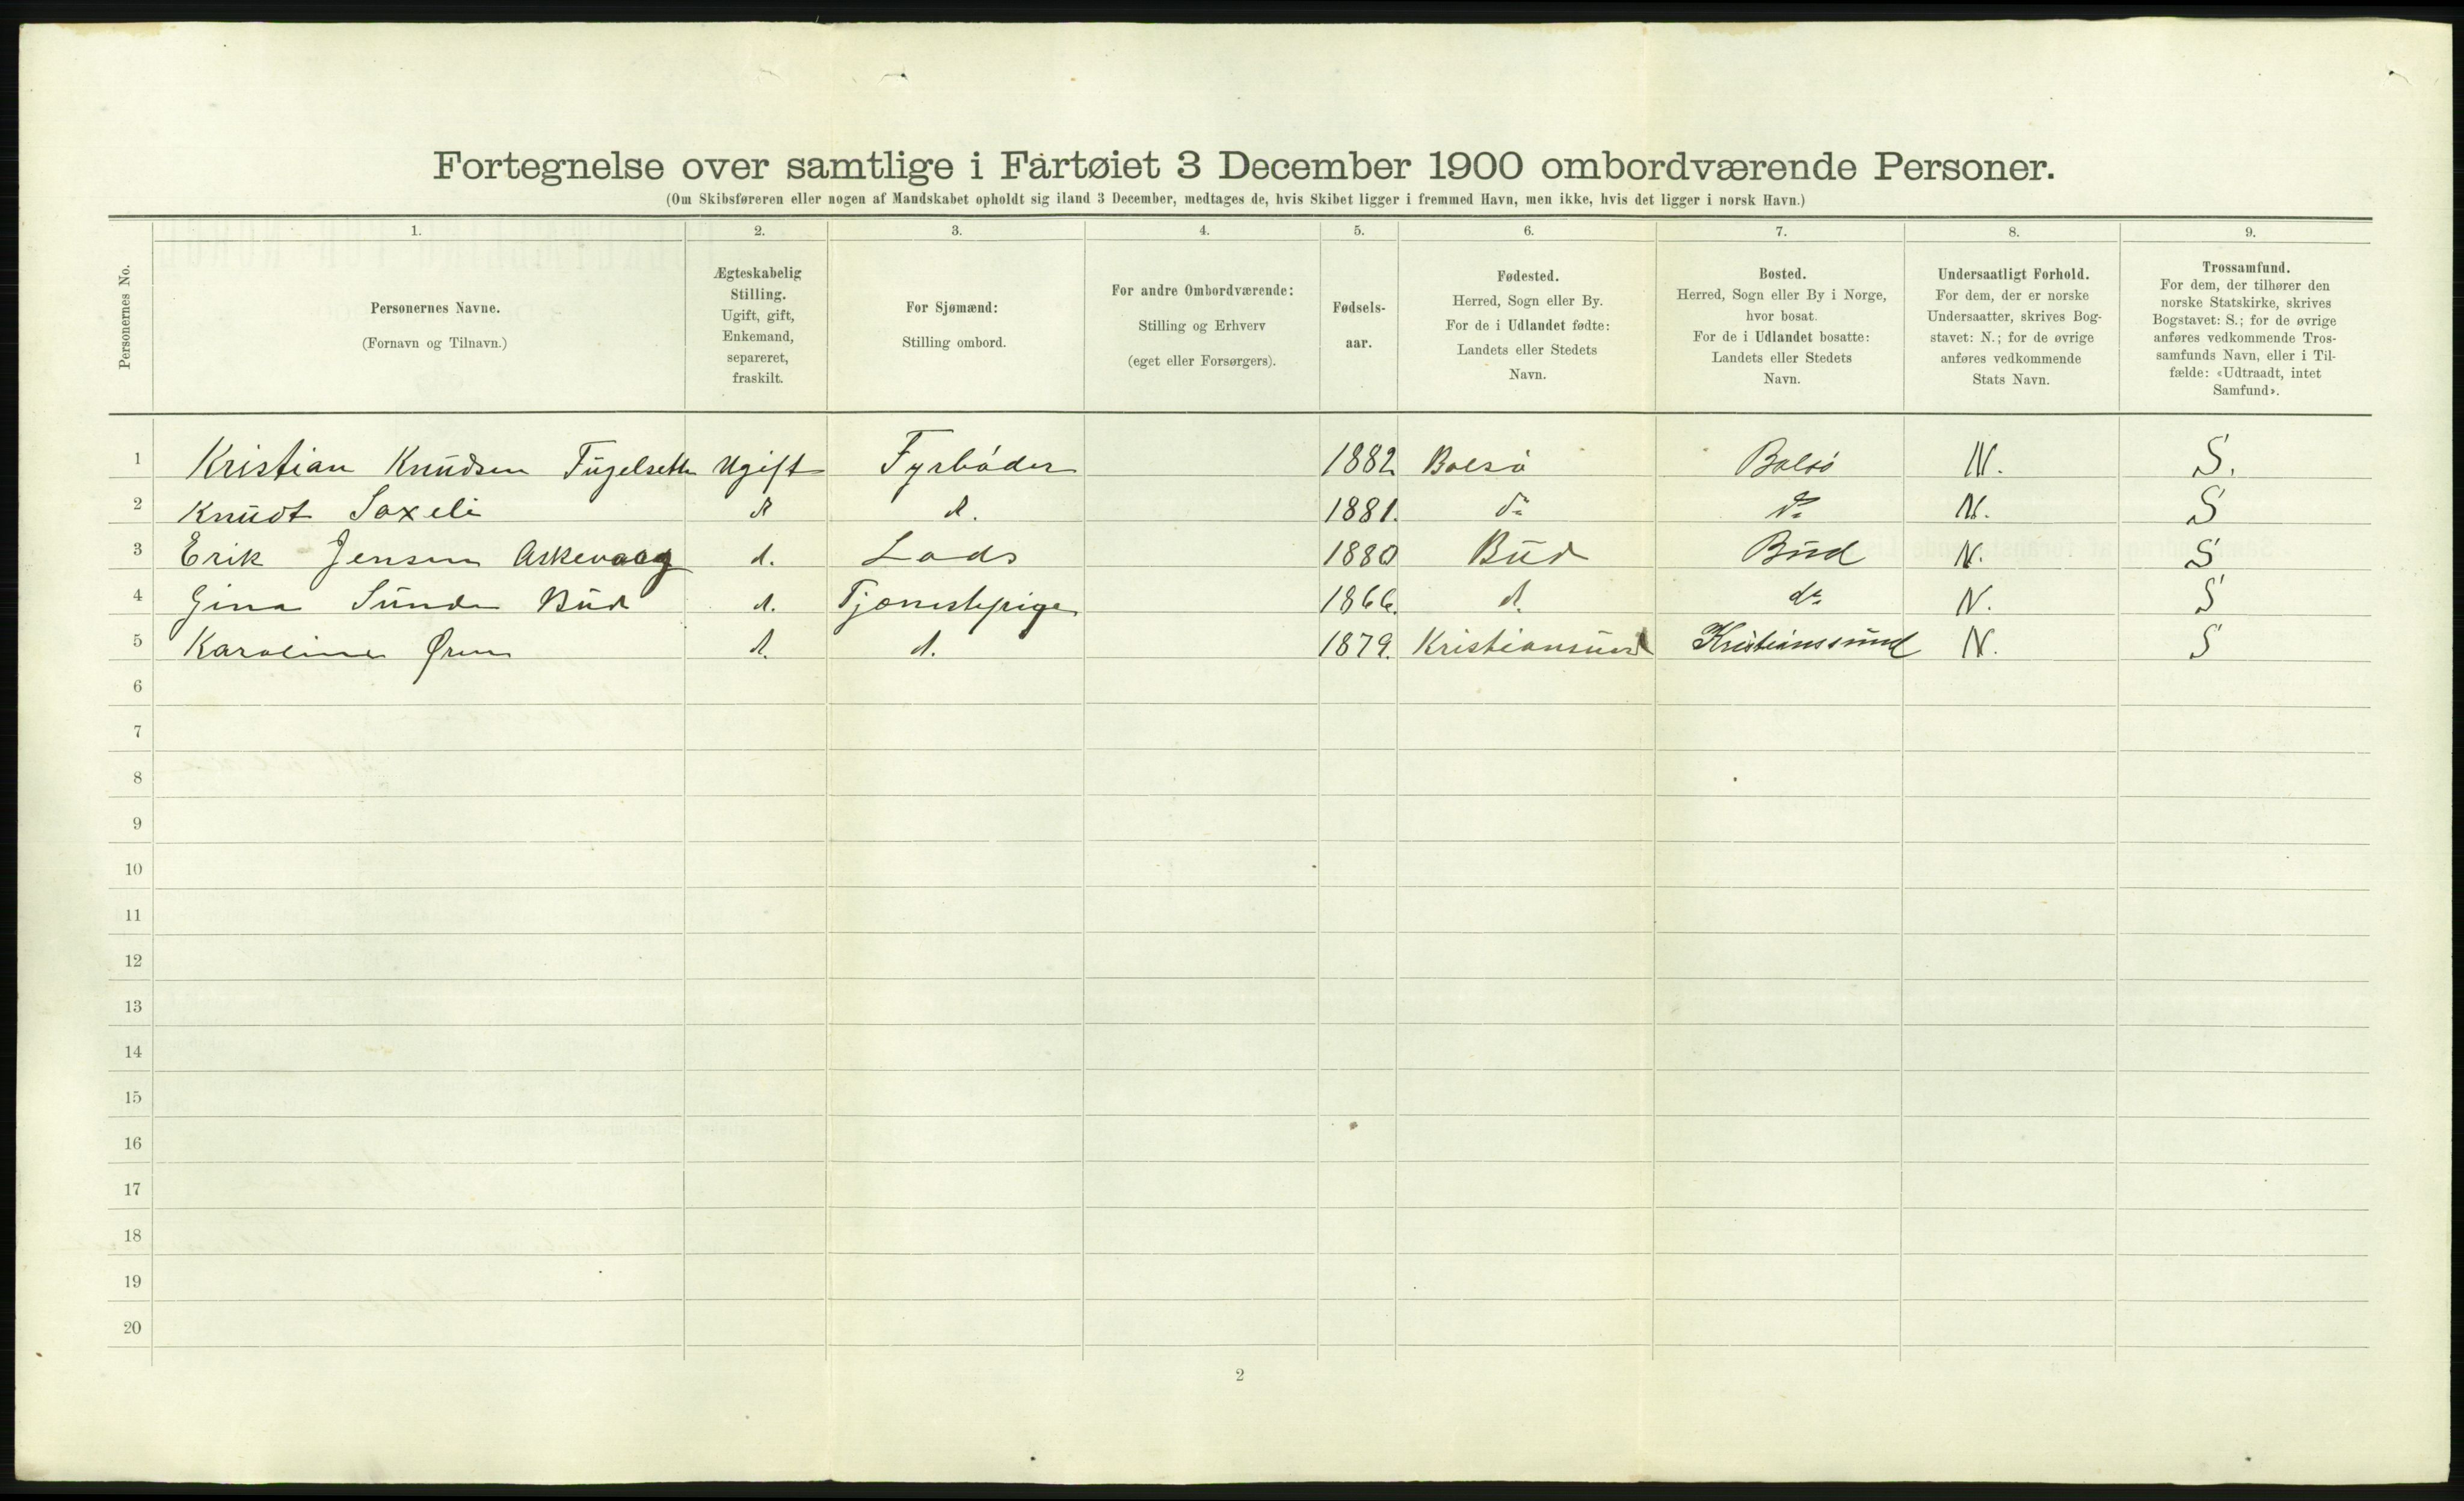 Fortegnelse over samtlige i Fartøiet 3 December 1900 ombordværende Personer.
(Om Skibsføreren eller nogen af Mandskabet opholdt sig iland 3 December, medtages de, hvis Skibet ligger i fremmed Havn, men ikke, hvis det ligger i norsk Havn.)
Personernes No.
1.
Personernes Navne.
(Fornavn og Tilnavn.)
2.
Ægteskabelig
Stilling.
Ugift, gift,
Enkemand,
separeret,
fraskilt.
3.
For Sjømænd:
Stilling ombord.
4.
For andre Ombordværende:
Stilling og Erhverv
(eget eller Forsørgers).
5.
Fødsels-
aar.
6.
Fødested.
Herred, Sogn eller By.
For de i Udlandet fødte:
Landets eller Stedets
Navn.
7.
Bosted.
Herred, Sogn eller By i Norge,
hvor bosat.
For de i Udlandet bosatte:
Landets eller Stedets
Navn.
8.
Undersaatligt Forhold.
For dem, der er norske
Undersaatter, skrives Bog-
stavet: N.; for de øvrige
anføres vedkommende
Stats Navn.
9.
Trossamfund.
For dem, der tilhører den
norske Statskirke, skrives
Bogstavet: S.; for de øvrige
anføres vedkommende Tros-
samfunds Navn, eller i Til-
fælde: «Udtraadt, intet
Samfund».
1 Kristian Knudsen Fugelseth Ugift Fyrbøder 1882 Bolsø Bolsø N. S.
2 Knudt Saxeli d d. 1881. do do N. S
3 Erik Jensen Askevaag d. Lods 1880 Bud Bud N. S
4 Gina Sunde Bud d. Tjenestepige 1866. d. do N. S
5 Karoline d. d. 1879. Kristiansund Kristianssund N. S
6
7
8
9
10
11
12
13
14
15
16
17
18
19
20
2